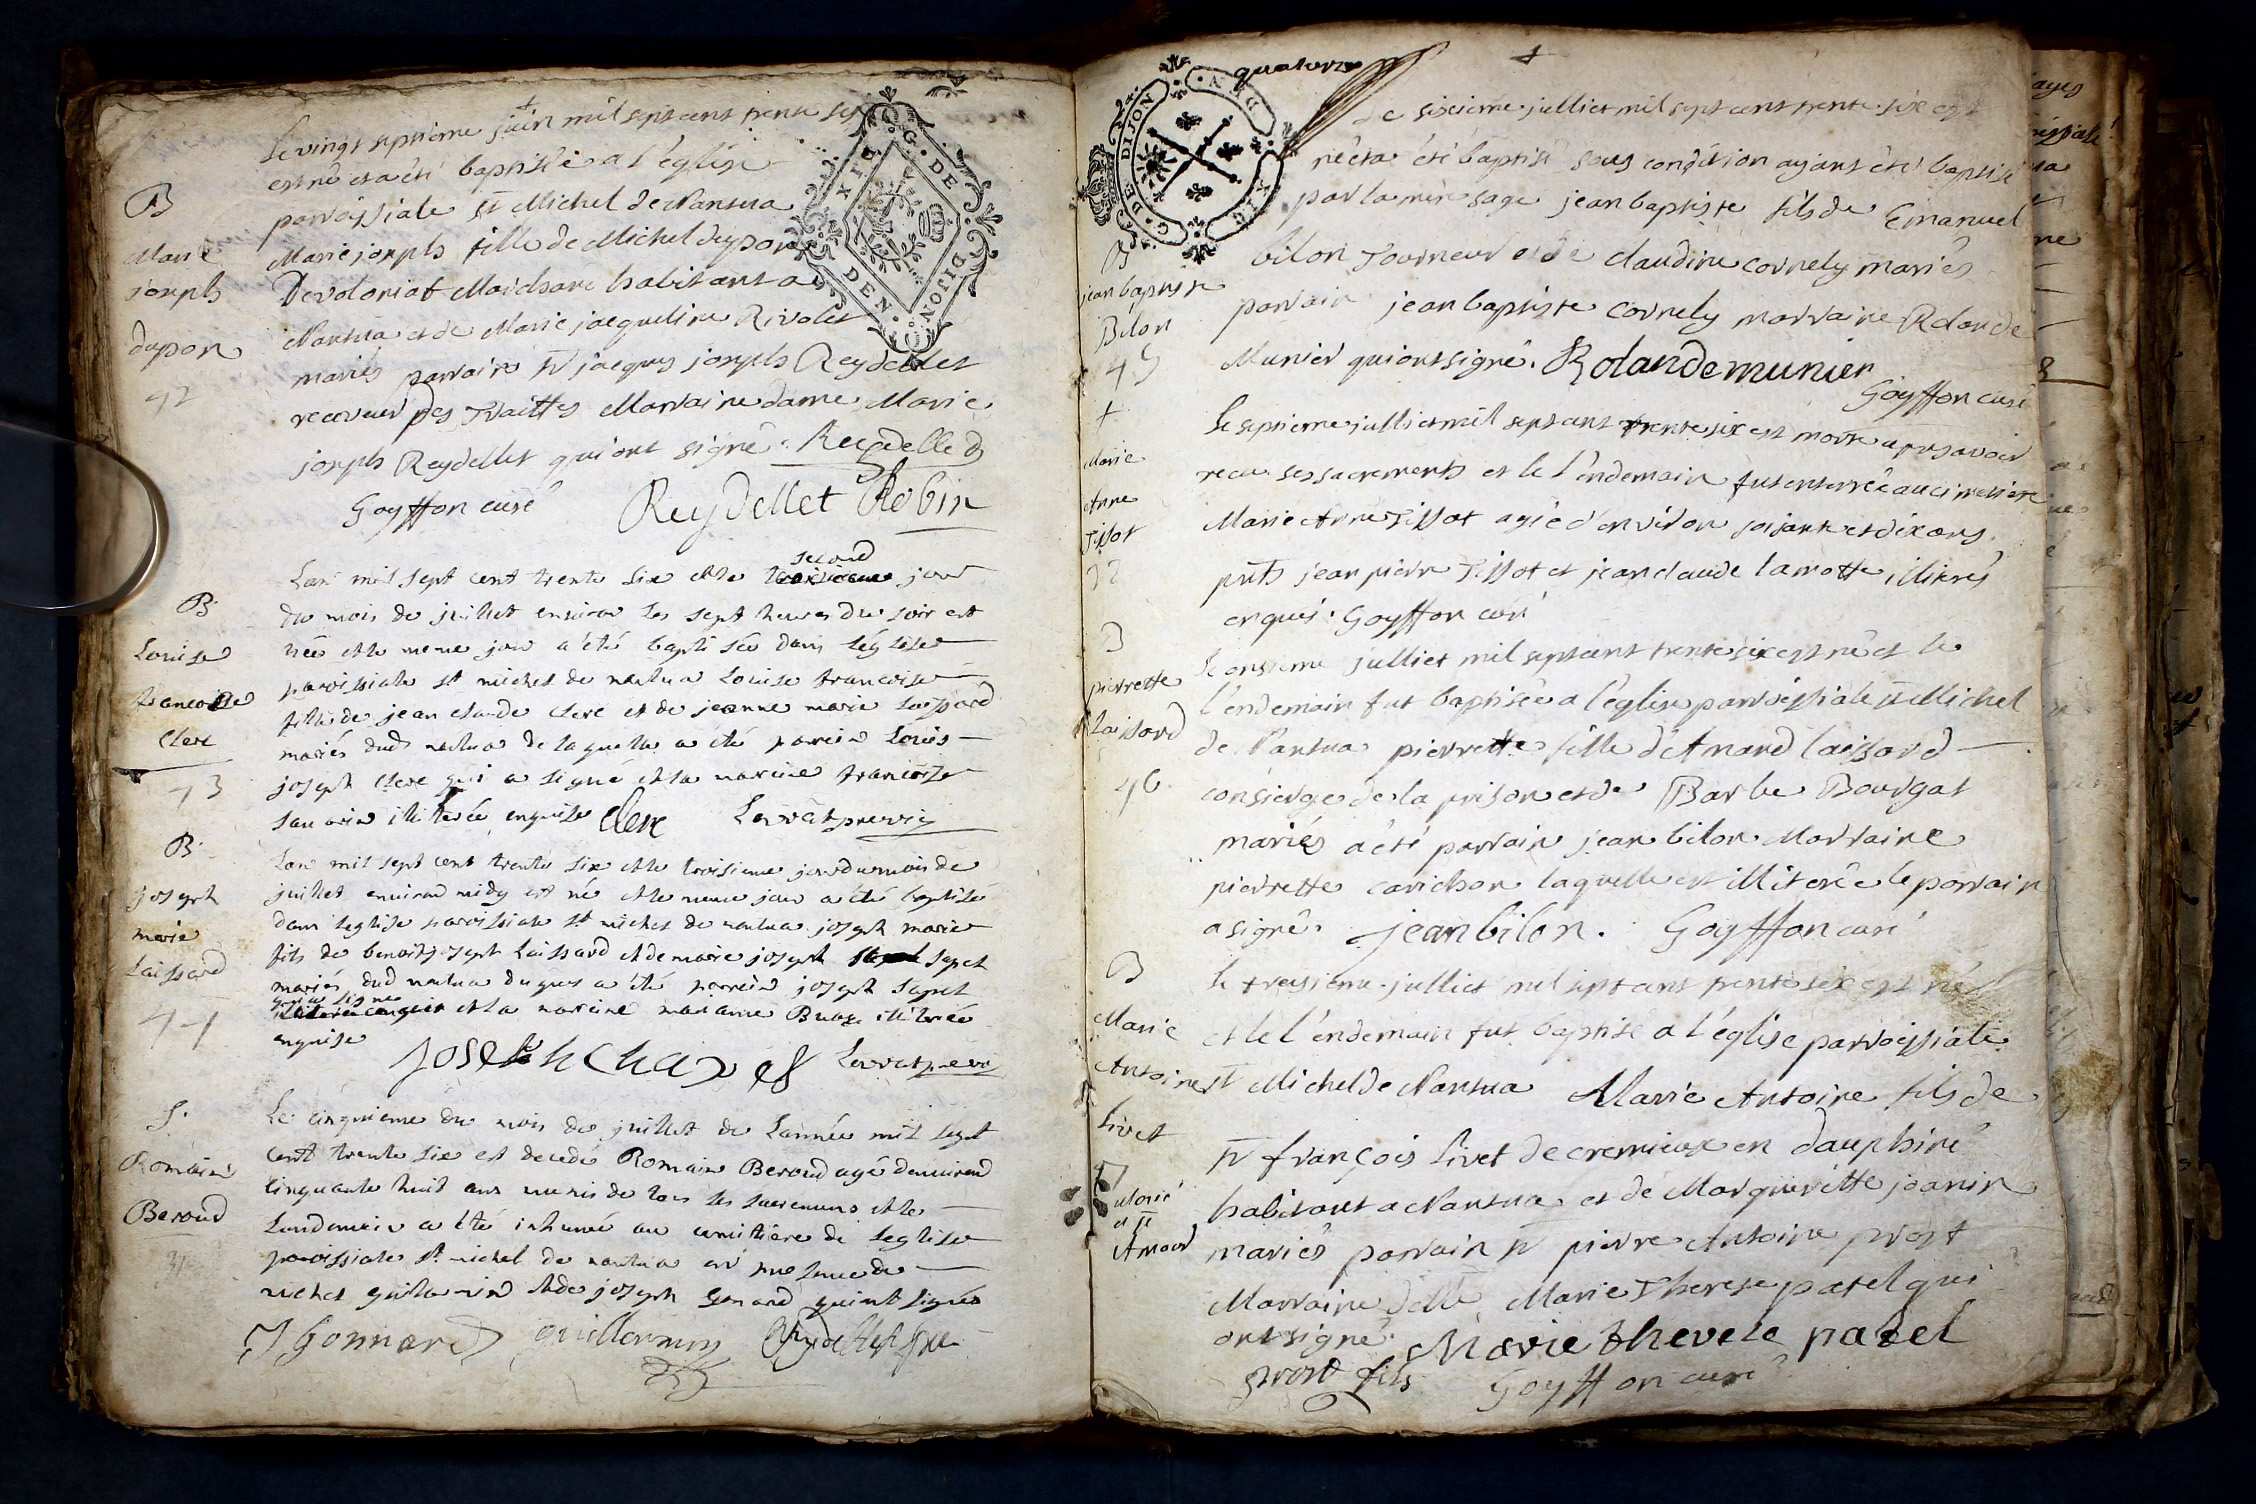 Le vingt septieme juin mil sept cent trente six
est né et a été baptisée a l'église
parroissiale st Michel de Nantua
Marie joseph fille de Michel dupon
Devoloniat Marchant habitant a
Nantua et de Marie jacqueline Rivolet
mariés parrain sr jacques joseph Reydellet
receveur des Traittes Marraine dame Marie
joseph Reydellet qui ont signé. Reydellet
Goyffon curé Reydellet Robin
B
Marie
joseph
dupon
42
Lan mil sept cent trente six et le second jour
du mois de juillet environ les sept heures du soir est
née et le meme jour a été baptisée dans léglise
paroissiale st michel de nantua Louise francoise
fille de jean claude clerc et de jeanne marie laissard
mariés dud nantua de laquelle a été parein Louis
joseph clerc qui a signé et la mareine francoise
illiterée enquise Clerc
B.
Louise
francoise
Clerc
43
Lan mil sept cent trente six et le troisieme jour du mois de
juillet environ midy est né et le meme jour a été baptisé
dans leglise paroissiale st michel de nantua joseph marie
fils de benoit joseph Laissard et de marie joseph sapet
mariés dud nantua duquel a été parrein joseph sapet
qui a signé et la mareine marianne illiterée
enquise
B.
joseph
marie
Laissard
44
Le cinquieme du mois de juillet de Lannée mil sept
cent trente six est decedé Romain Beroud agé denviron
cinquante huit ans munis de tous les sacremens et le
lendemain a été inhumé au cimitière de leglise
paroissiale st michel de nantua en presence de
michel guillermin et de joseph Gonard qui ont signés
J Gonnard guillermin
S.
Romain
Beroud
quatorze
Le sixieme julliet mil sept cent trente six est
né et a été baptisé sous condition ayant été baptisé
par la mere sage jean baptiste fils de Emanuel
bilon Tourneur et de claudine cornely mariés
parrain jean baptiste cornely marraine Rolande
Munier qui ont signé. Rolande munier
Goyffon curé
B
jean baptiste
Bilon
45
Le septieme julliet mil sept cent trente six est morte apres avoir
recu ses sacrements et le l'endemain fut enterrée au cimetiere
Marie Anne Tissot agée d'environ soisante et dix ans
pnts jean pierre Tissot et jean claude lamotte illiterés
enquis. Goyffon curé
+
Marie
Anne
Tissot
Le onsieme julliet mil sept cent trente six est né et le
l'endemain fut baptisée a l'eglise parroissiale st Michel
de Nantua pierrette fille d'Amand laissard
consierge de la prison et de Barbe Bourgat
mariés a été parrain jean bilon Marraine
pierrette carichon laquelle est illiterée le parrain
a signé. jean bilon. Goyffon curé
B
pierrette
Laissard
46
Le treisieme julliet mil sept cent trente six est né
et le l'endemain fut baptisé a l'église parroissiale
st Michel de Nantua Marie Antoine fils de
sr françois Livet de cremieux en dauphiné
habitant a Nantua et de Marguerite joanin
mariés parrain sr pierre Antoine prost
Marraine delle Marie Therese patel qui
ont signé. Marie therese patel
prost fils Goyffon curé
B
Marie
Antoine
Livet
marié
a st
Amour